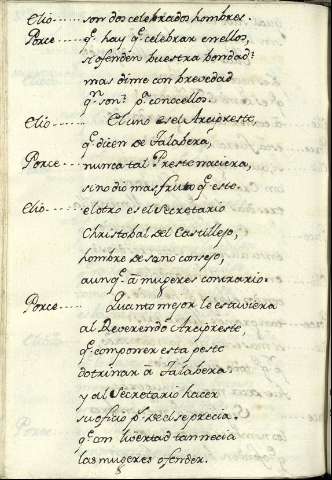 Clio...... son dos celebrados hombres.
Porce..... q̃ hay q̃ celebrar en ellos,
si ofenden buestra bondad?
mas dime con brevedad
qn. son? pa. conocellos.
Clio...... El uno es el Arcipreste,
q̃ dicen de Talabera,
Porce..... nunca tal Preste naciera,
si no dió mas fruto q̃ este
Clio...... el otro es el Secretario
Christobal del Castillejo,
hombre de sano consejo,
aunq̃ à mugeres contrario.
Porce...... Quanto mejor le estuviera
al Reverendo Arcipreste,
q̃ componer esta peste
dotrinar à Talabera
y al Secretario hacer
su oficio ps. de el se precia.
q̃ con libertad tan necia
las mugeres ofender.